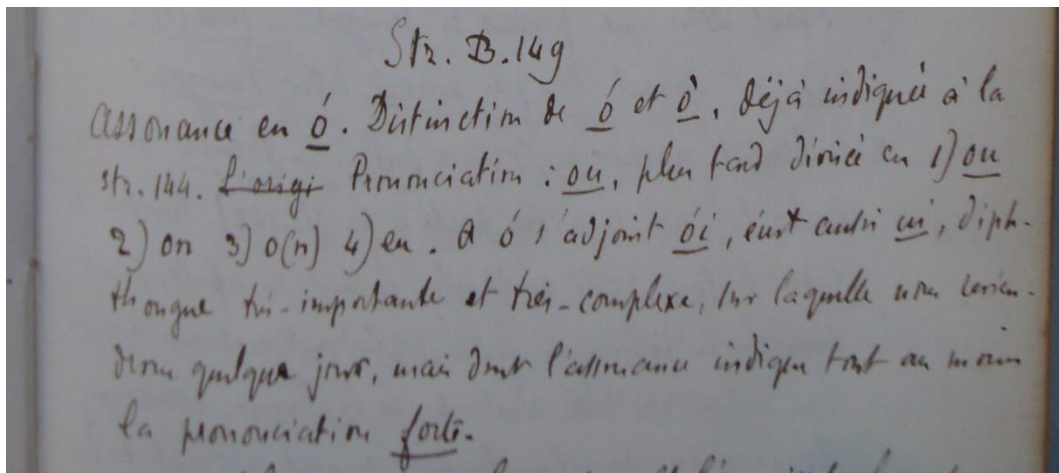 Str. B. 149
assonance en ó. Distinction de ó et ò, déjà indiquée à la
str. 144. L'origi Prononciation : ou, plus tard divisée en 1) ou
2) on 3) o(n) 4) eu. A ó s'adjoint ói, écrit aussi ui, diph-
thongue très-importante et très-complexe, sur laquelle nous revien-
drons quelque jour, mais dont l'assonance indique tout au moins
la prononciation forte.